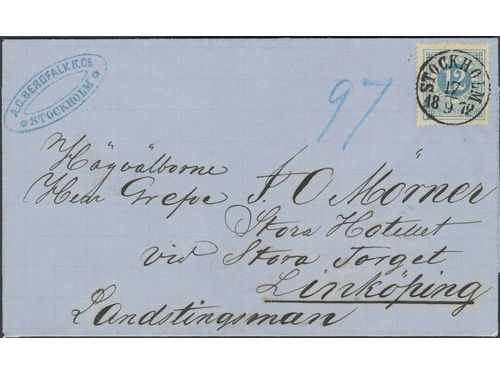 A.G. BERGFALK & Co.
STOCKHOLM
12
STOCKHOLM
17
18 9 72
97
Högvälborne
Herr Grefve F. O Mörner
Stora Hotellet
vid Stora Torget
Linköping
Landstingsman